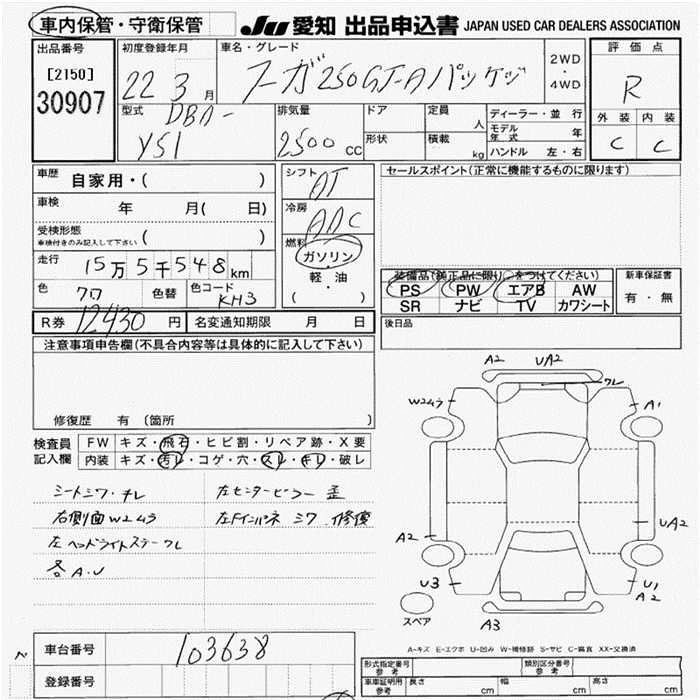 車内保管・守衛保管
JU 愛知 出品申込書 JAPAN USED CAR DEALERS ASSOCIATION
出品番号
[2150]
30907
初度登録年月
22 3月
車名・グレード
フーガ 250GT-Aパッケジ
2WD
・
4WD
評価点
R
外装 内装
C C
型式
DBA-
Y51
排気量
2500 CC
ドア
形状
定員
人
積載
kg
ディーラー・並行
モデル年式 年
ハンドル 左・右
車歴 自家用・( )
車検 年 月( 日)
受検形態
車検付きのみ記入して下さい ( )
走行 15万5千548km
色 クロ 色替 色コード KH3
シフト AT
冷房 AAC
燃料 ガソリン
・
軽・油
( )
セールスポイント(正常に機能するものに限ります)
装備品(純正品に限り○をつけてください)
PS PW エアB AW
SR ナビ TV カワシート
新車保証書
有・無
R券 12430 円 名変通知期限 月 日
後日品
注意事項申告欄(不具合内容等は具体的に記入して下さい)
修復歴 有 (箇所 )
検査員記入欄
FW キズ・飛石・ヒビ割・リペア跡・X要
内装 キズ・汚レ・コゲ・穴・スレ・キレ・破レ
シートシワ・チレ 左センターピラー歪
右側面W2ムラ 左Fインパネ シワ.修復
左ヘッドライトステーワレ
各A.U
A2 UA2
ワレ
W2ムラ
A1
A2
UA2
U3
U1
A2
スペア
A3
A-キズ E-エクボ U-凹み W-補修跡 S-サビ C-腐食 XX-交換済
車台番号 103638
登録番号
形式指定番号 参考
類別区分番号 参考
車庫証明用 参考 長さ cm 幅 cm 高さ cm